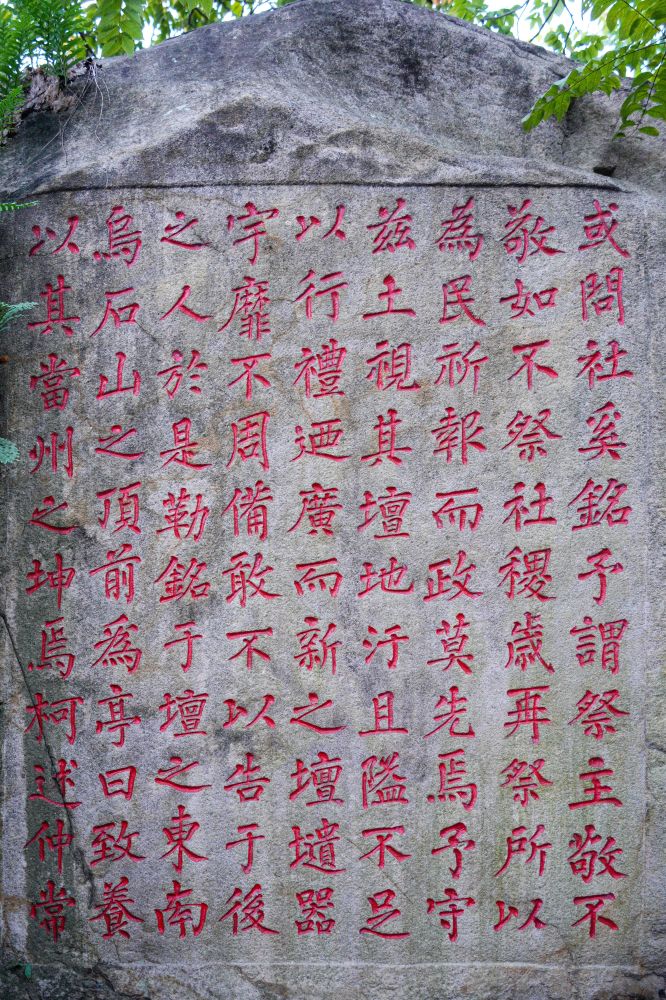 或問社奚銘予謂祭主敬不
敬如不祭社稷歳再祭所以
為民祈報而政莫先焉予守
茲土視其壇地汙且隘不足
以行禮迺廣而新之壇壝器
宇靡不周備敢不以告于後
之人於是勒銘于壇之東南
烏石山之頂前為亭曰致養
以其當州之坤焉柯述仲常